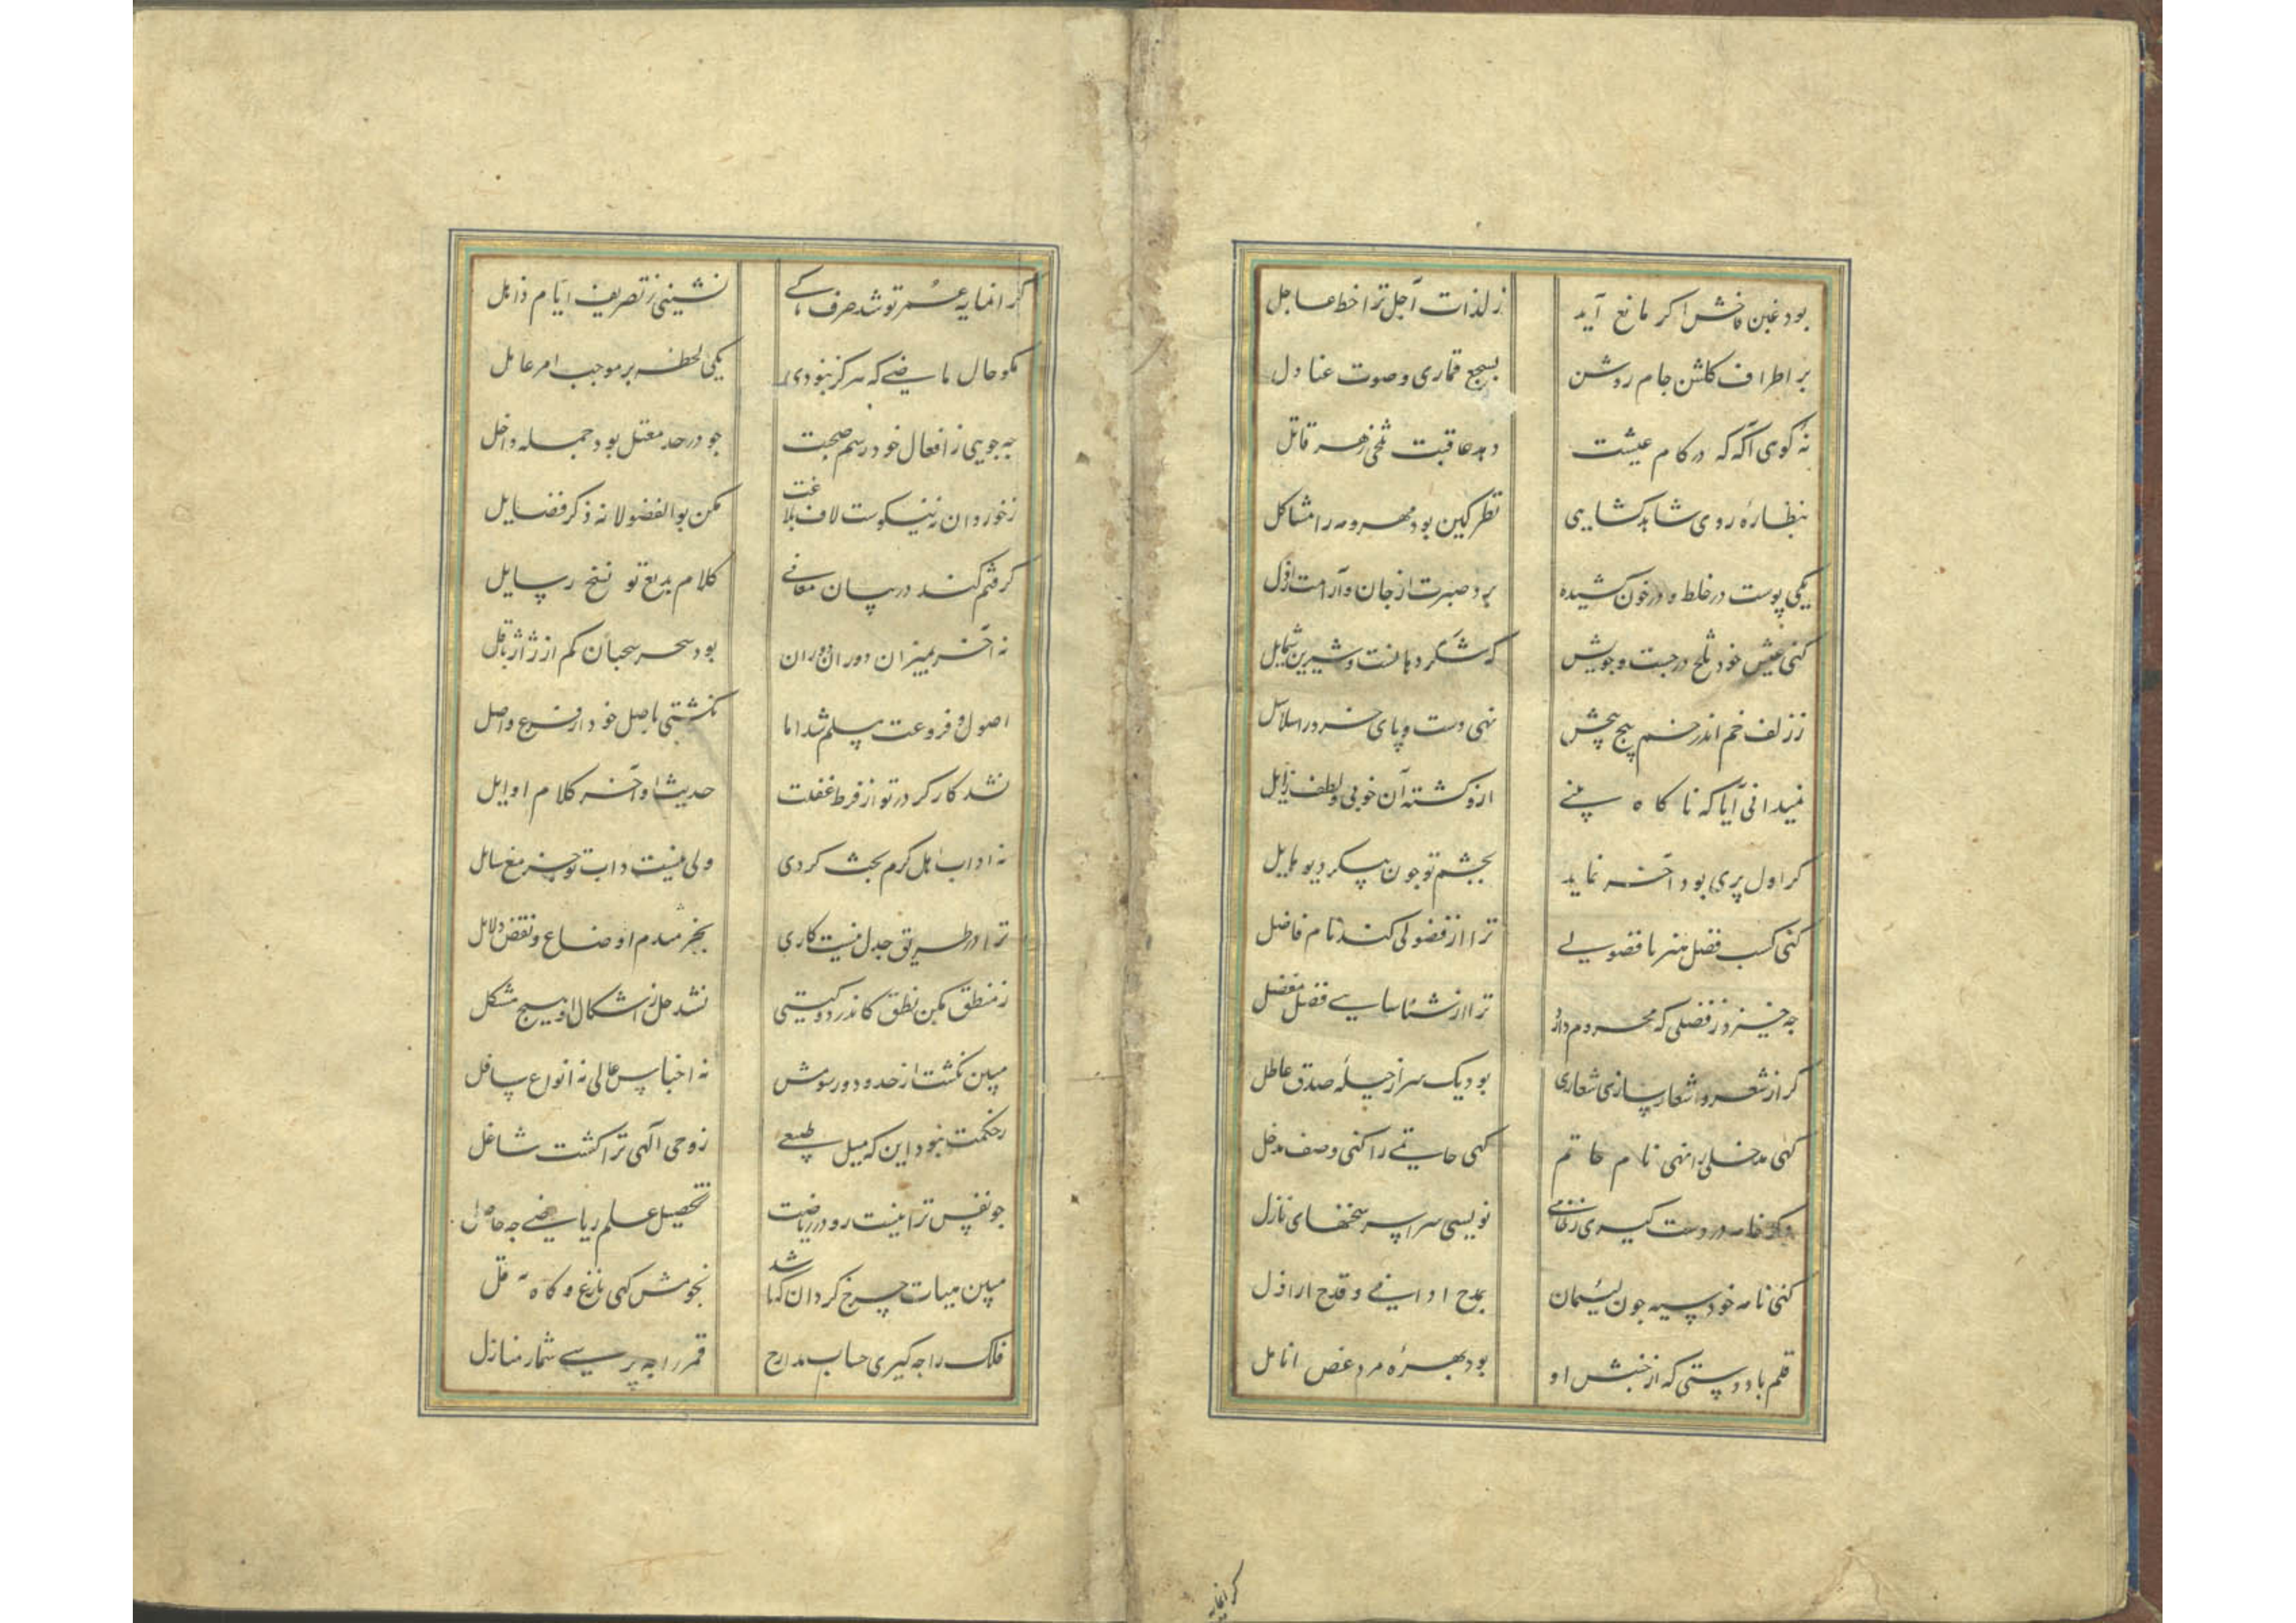 بود غبن فاحش اگر مانع آید ز لذات آجل ترا خط عاجل
بر اطراف گلشن جام روشن بسجع قماری و صوت عنادل
نه گوی آگه که در کام عیشت دهد عاقبت تلخی زهر قاتل
بنظاره روی شاهد گشایی نظر کین بود مهر و مه را مشاکل
یکی پوست در خلط و در خون کشیده برد صبرت از جان و آرامت از دل
کنی عیش خود تلخ در جست و جویش که شکر دهانست و شیرین شمایل
ز زلف خم اندر خم پیچ پیچش نهی دست و پای خرد در سلاسل
نمیدانی آیا که ناگاه بینی ازو گشته آن خوبی و لطف زایل
گر اول پری بود آخر نماید بچشم تو چون پیکر دیو هایل
کنی کسب فضل هنر با فضولی ترا از فضولی کند نام فاضل
چه خیزد ز فضلی که محروم دارد ترا از شناسایی فضل مفضل
گر از شعر و اشعار سازی شعاری بود یک سر از حیلهٔ صدق عاطل
کهی مدخلی را نهی نام حاتم کهی حاتمی را کنی وصف مدخل
وگر خامه در دست گیری نویسی سراسر سخنهای نازل
کنی نامه خود سیه چون لئیمان بمدح ادانی و قدح اراذل
قلم باد دستی که از جنبش او بود بهرهٔ مرد غص انامل
گرانمایه
گرانمایه عمر تو شد صرف تا کی نشینی ز تصریف ایام ذاهل
مگو حال ماضی که هرگز نبودی یکی لحظه بر موجب امر عامل
چه جویی ز افعال خود رسم صحت چو در حد معتل بود جمله داخل
ز خوردان نه نیکوست لاف بلاغت مکن بو الفضولانه ذکر فضایل
گرفتم کند در بیان معانی کلام بدیع تو نسخ رسایل
نه آخر بمیزان دوران بود سحر سحبان کم از ژاژ باقل
اصول و فروعت مسلم شد اما نگشتی باصل خود از فرع واصل
نشد کارگر در تو از فرط غفلت حدیث اواخر کلام اوایل
نه آداب اهل کرم بحث کردی ولی نیست دابت جز منع سایل
ترا در طریق جدل نیست کاری بجز هدم اوضاع و نقض دلایل
ز منطق مکن نطق کاندر دو گیتی نشد حل از اشکال او هیچ مشکل
مبین نگشت از حدود و رسومش نه اجناس عالی نه انواع سافل
ز حکمت نبود این که میل طبیعی ز وحی آلهی ترا گشت شاغل
چو نفس ترا نیست رو در ریاضت تحصیل علم ریاضی چه حاصل
مبین هیات چرخ گردان که باشد نجومش کهی بازغ و گاه آفل
فلک را چه گیری حساب مدارج قمر را چه پرسی شمار منازل